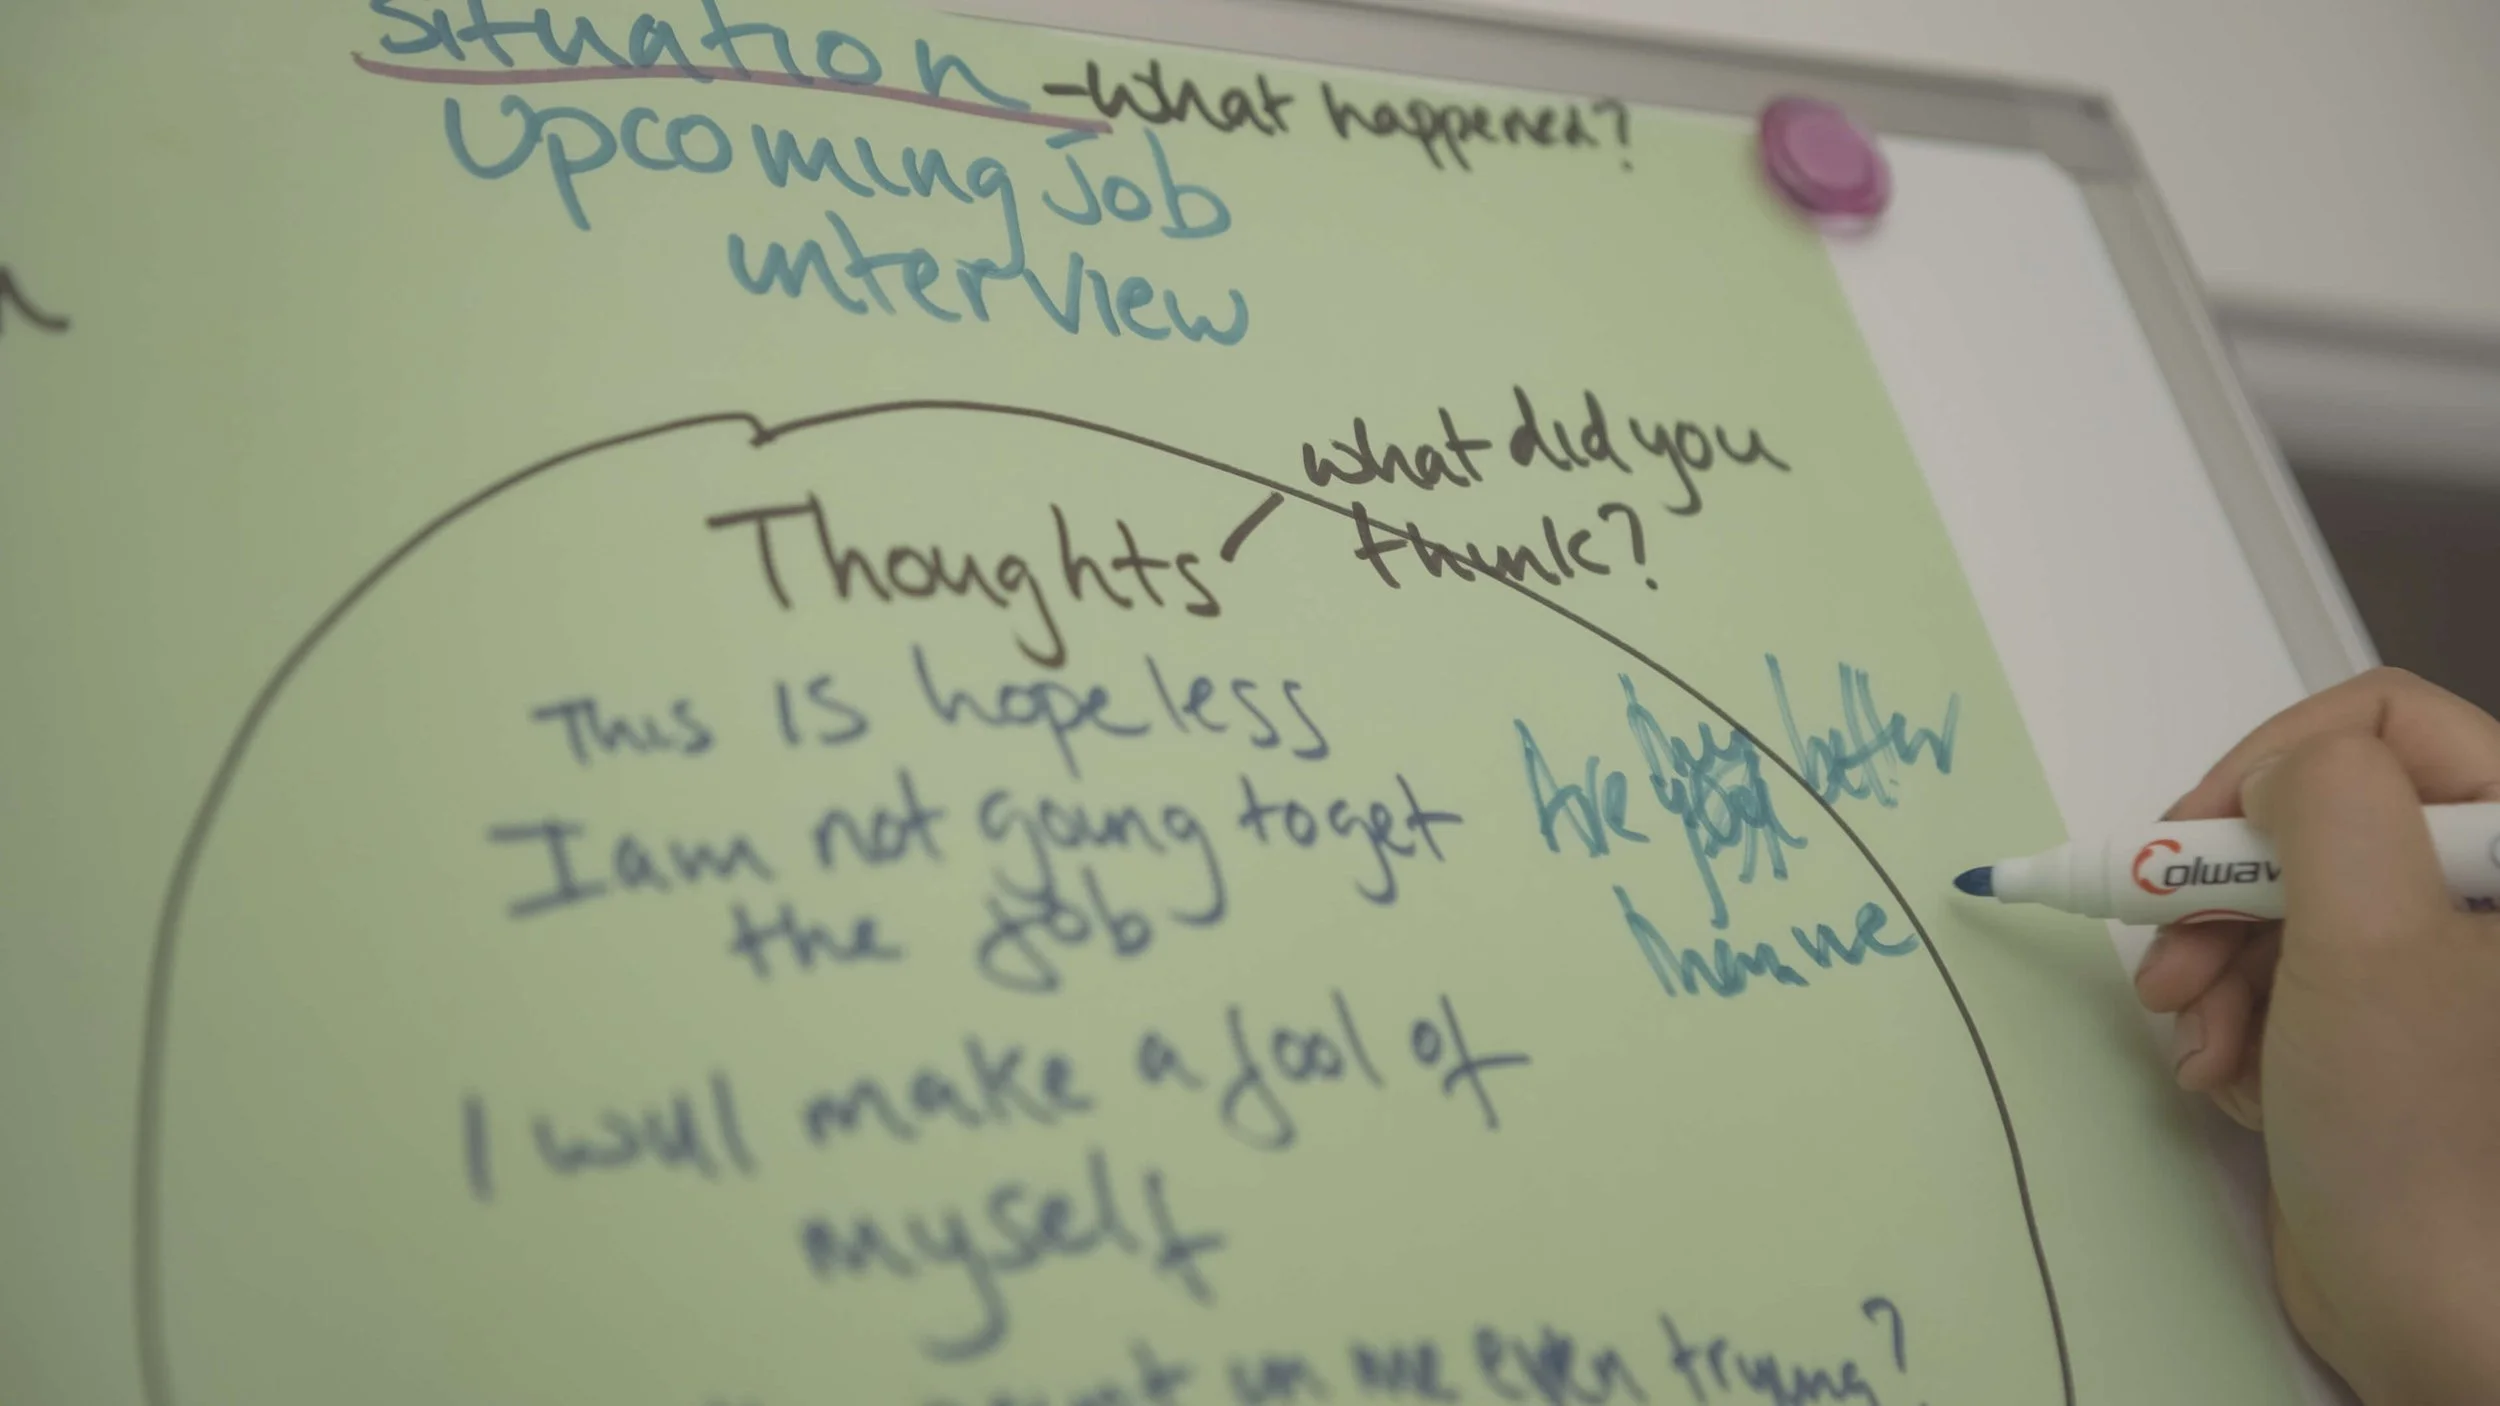 Situation - What happened?
Upcoming job
interview
what did you
think?
Thoughts
This is hopeless
I am not going to get
the job
I will make a fool of
myself
point in me even trying?
Are better
than me
Colwav